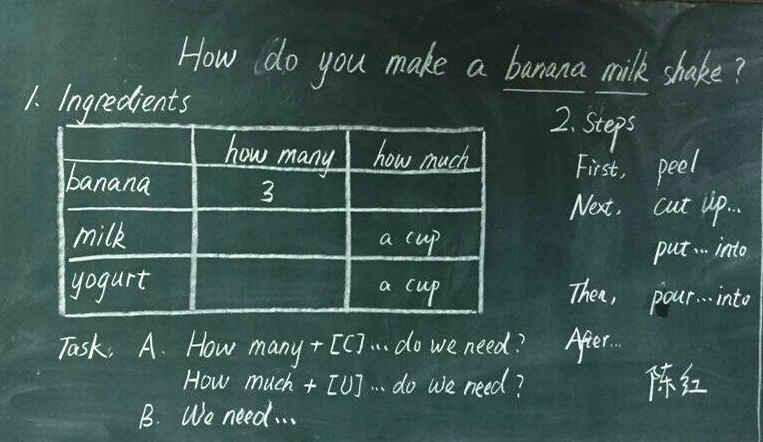 How do you make a banana milk shake?
1. Ingredients
how many how much
banana 3
milk a cup
yogurt a cup
Task: A. How many + [C] ... do we need?
How much + [U] ... do we need?
B. We need...
2. Steps
First, peel
Next, cut up...
put ... into
Then, pour ... into
After...
陈红